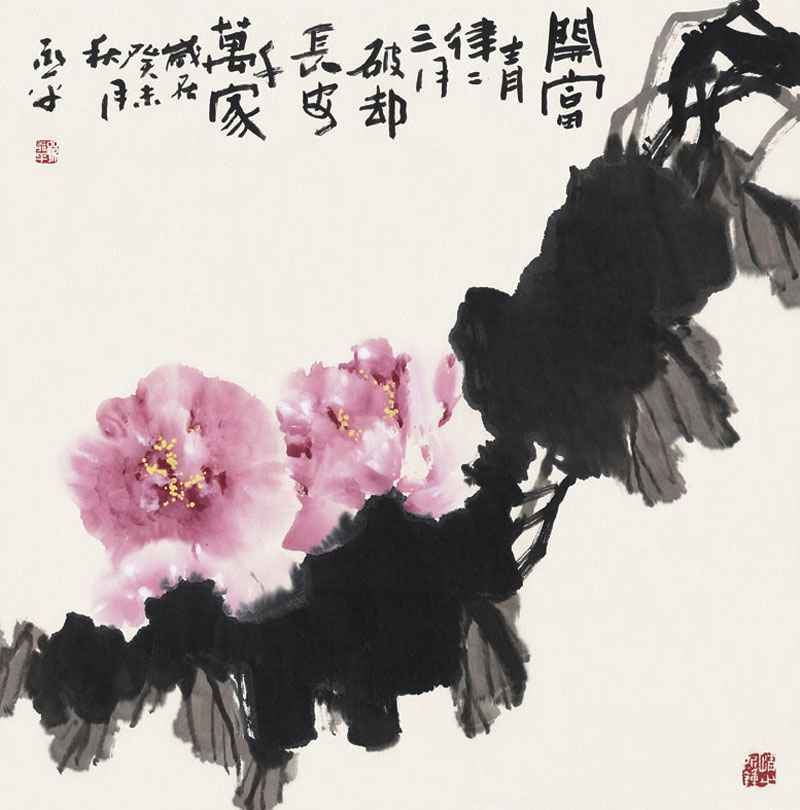 開當
青
律二
三月
破却
長安
千
萬家
歲在
癸未
秋月